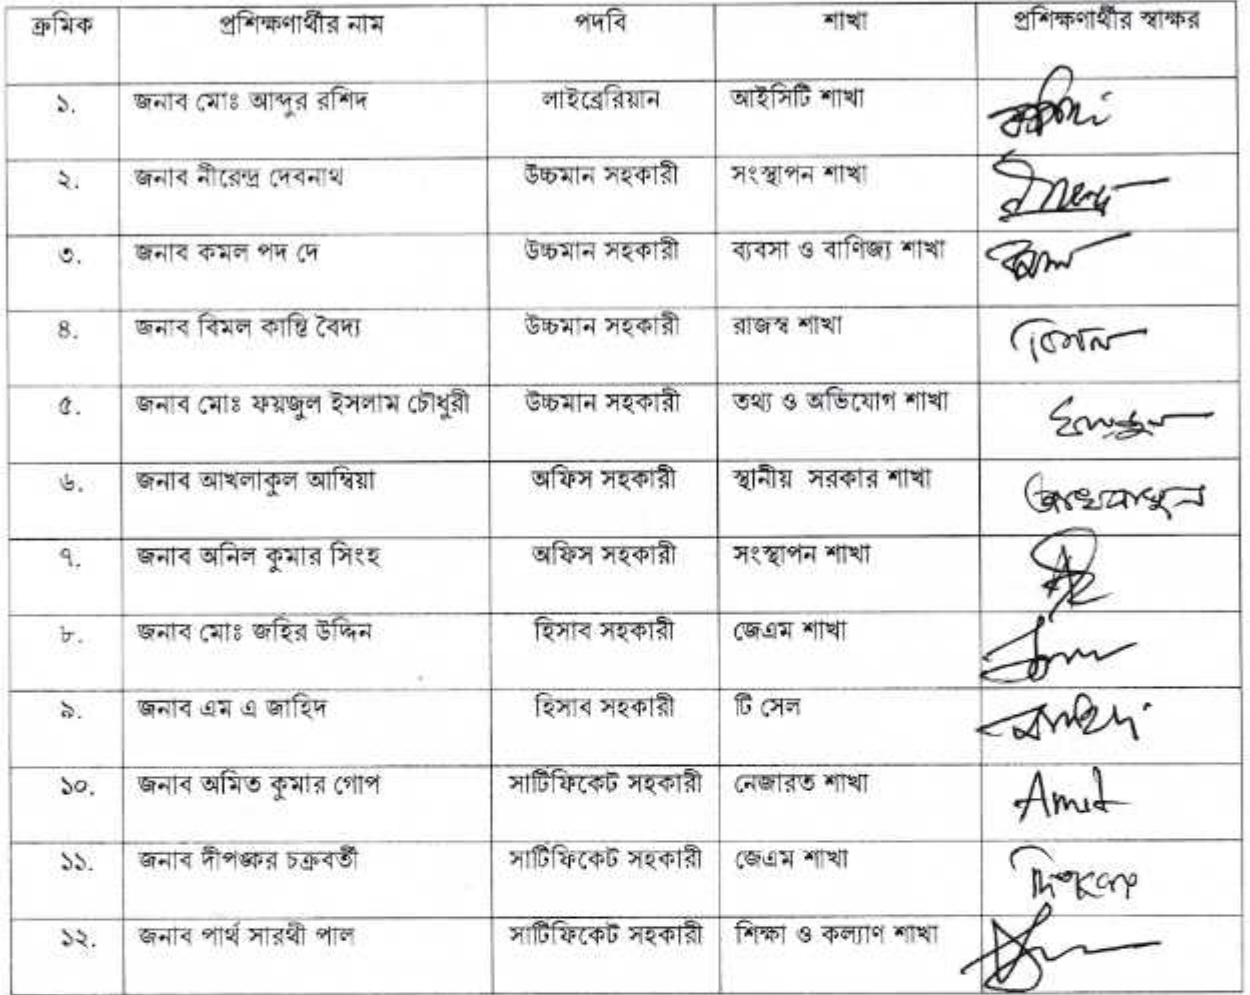 ক্রমিক প্রশিক্ষণার্থীর নাম পদবি শাখা প্রশিক্ষণার্থীর স্বাক্ষর
১. জনাব মোঃ আব্দুর রশিদ লাইব্রেরিয়ান আইসিটি শাখা
২. জনাব নীরেন্দ্র দেবনাথ উচ্চমান সহকারী সংস্থাপন শাখা
৩. জনাব কমল পদ দে উচ্চমান সহকারী ব্যবসা ও বাণিজ্য শাখা
৪. জনাব বিমল কান্তি বৈদ্য উচ্চমান সহকারী রাজস্ব শাখা বিমল
৫. জনাব মোঃ ফয়জুল ইসলাম চৌধুরী উচ্চমান সহকারী তথ্য ও অভিযোগ শাখা
৬. জনাব আখলাকুল আম্বিয়া অফিস সহকারী স্থানীয় সরকার শাখা আখলাকুল
৭. জনাব অনিল কুমার সিংহ অফিস সহকারী সংস্থাপন শাখা
৮. জনাব মোঃ জহির উদ্দিন হিসাব সহকারী জেএম শাখা
৯. জনাব এম এ জাহিদ হিসাব সহকারী টি সেল
১০. জনাব অমিত কুমার গোপ সার্টিফিকেট সহকারী নেজারত শাখা Amit
১১. জনাব দীপঙ্কর চক্রবর্তী সার্টিফিকেট সহকারী জেএম শাখা
১২. জনাব পার্থ সারথী পাল সার্টিফিকেট সহকারী শিক্ষা ও কল্যাণ শাখা